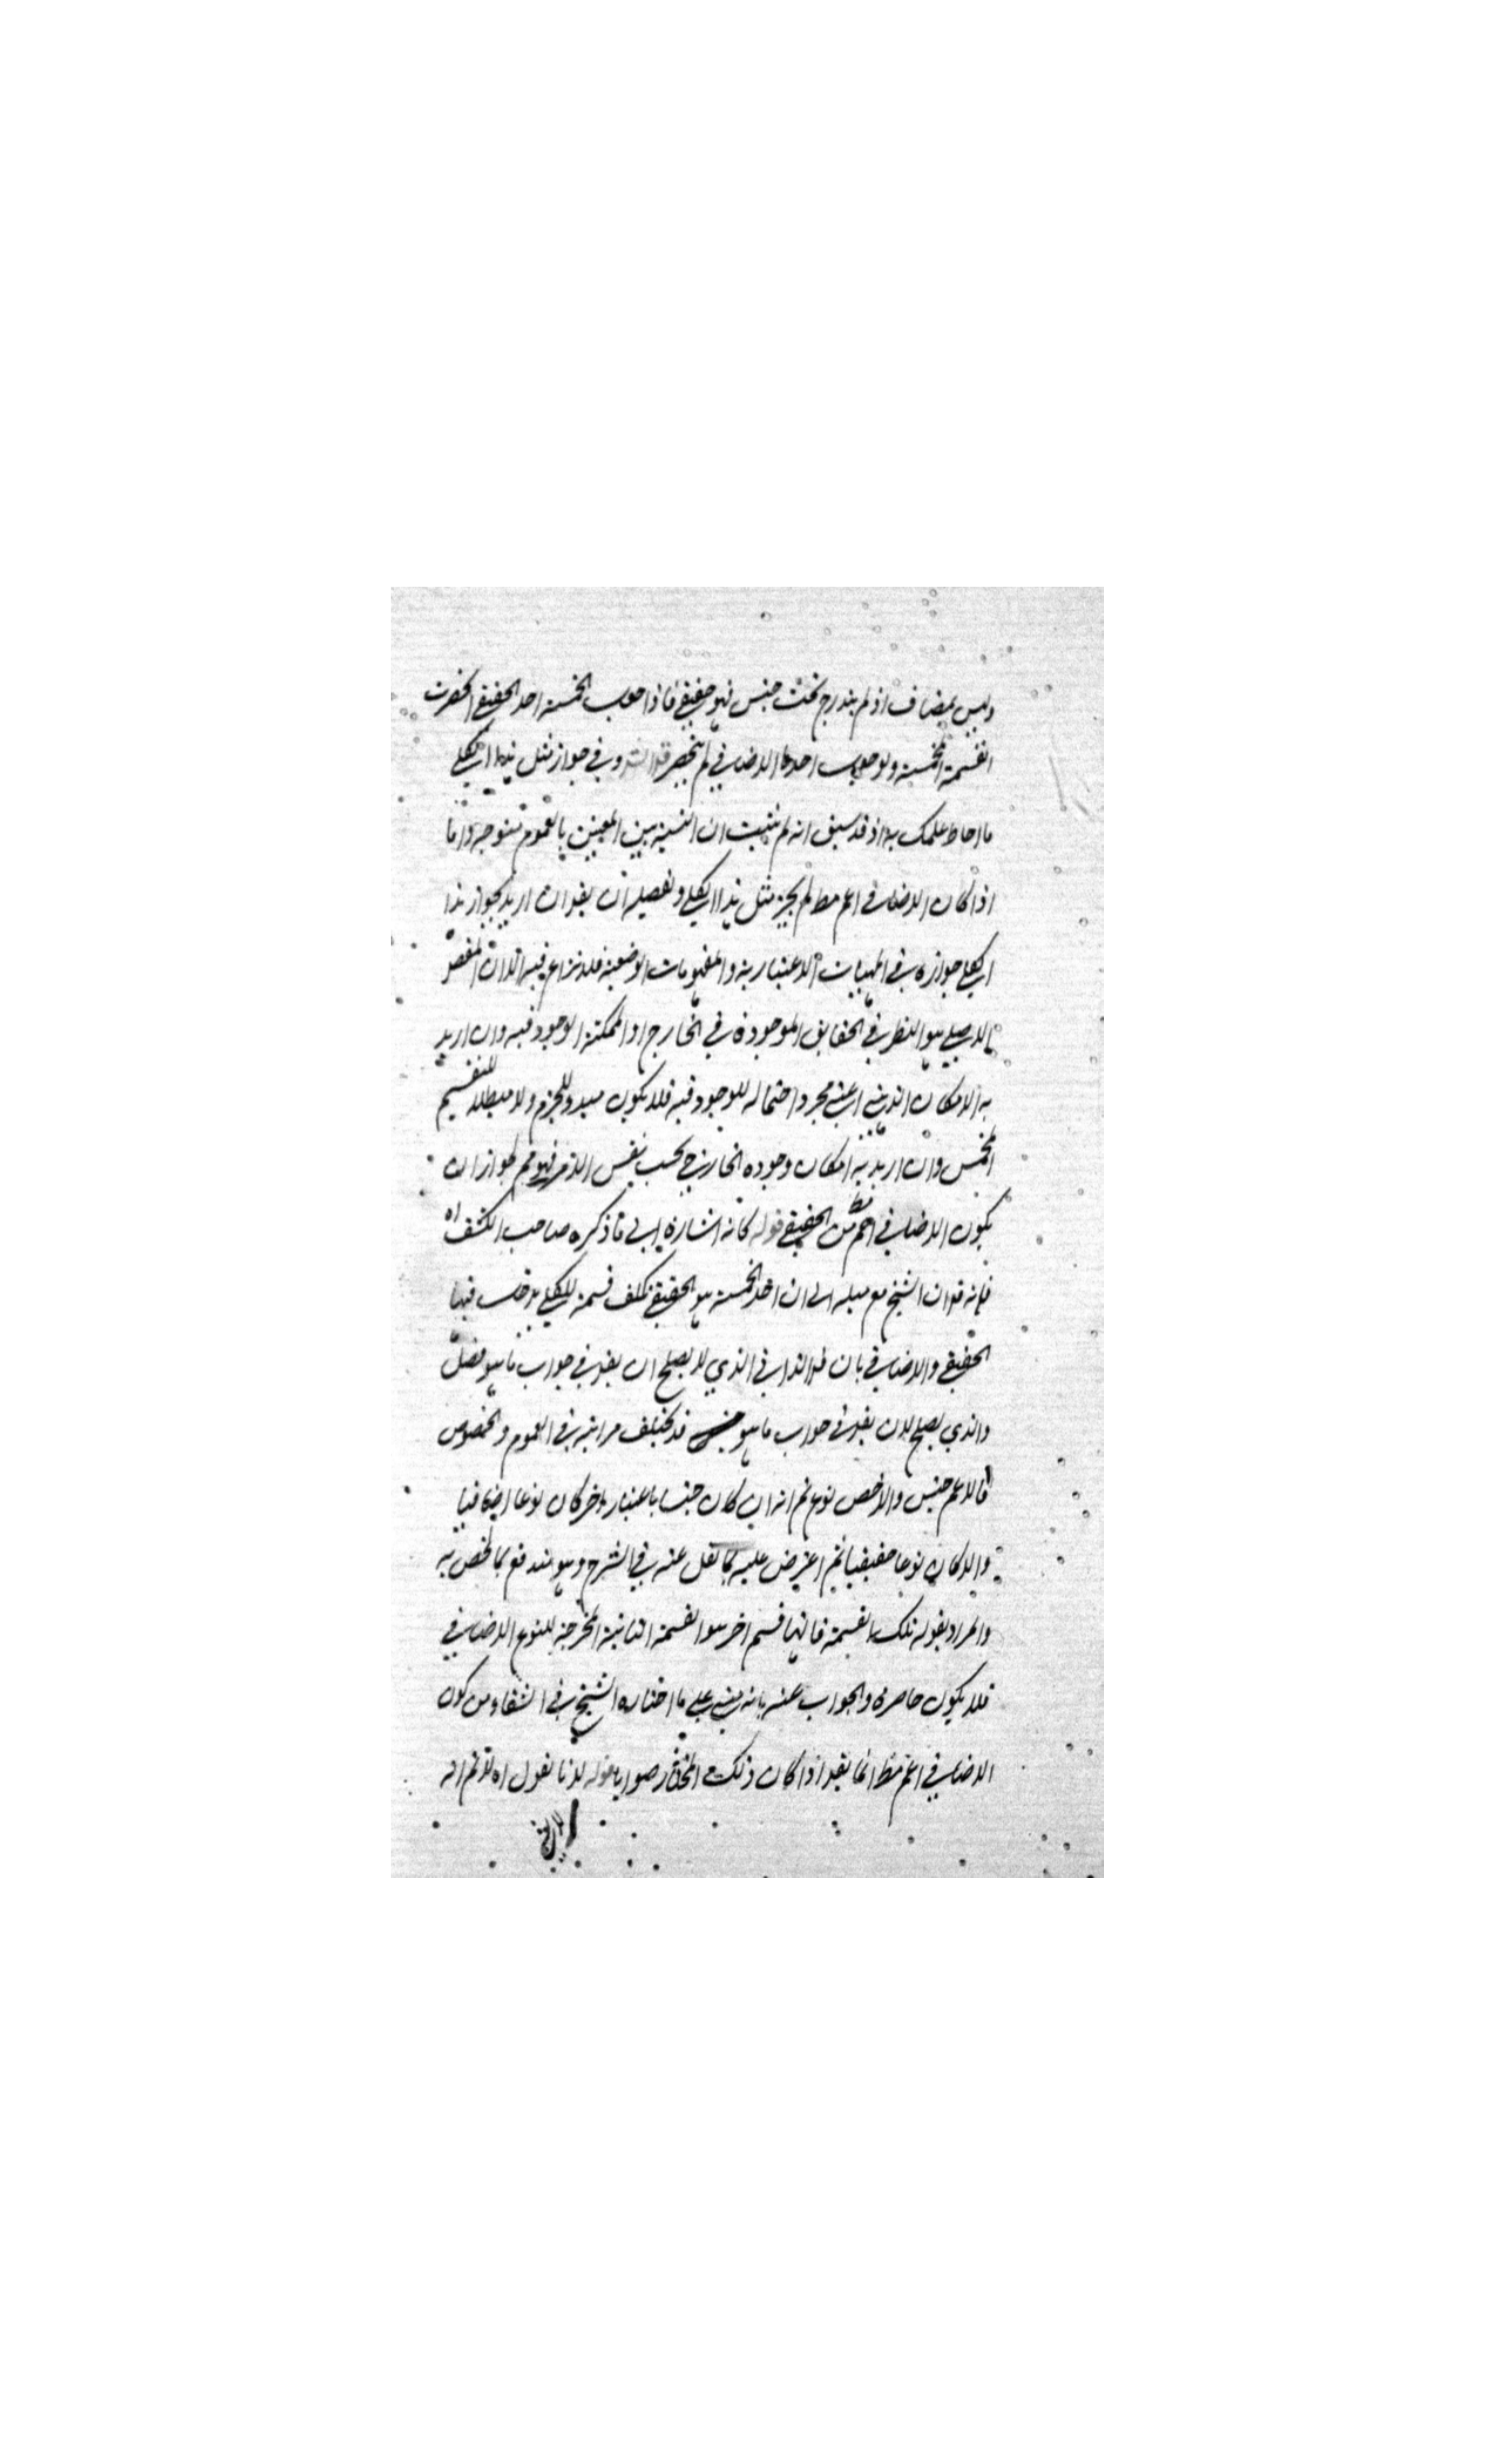 وليس بمضاف اذ لم يندرج تحت جنس فهو حقيقي فاذا جعل الخمسة احد الحقيقي انحصرت
القسمة المخمسة ولو جعل احدها الاضافي لم ينحصر قوله وفي جواز مثل هذا الكلي
ما احاط علمك به اذ قد سبق انه لم يثبت ان النسبة بين المعنيين بالعموم من وجه واما
اذا كان الاضافي اعم مط لم يجز مثل هذا الكلي وتفصيله ان يقال ان اريد بجواز هذا
الكلي جوازه في المهيات الاعتبارية والمفهومات الوضعية فلا نزاع فيه الا ان المقصد
الاصلي هو النظر في الحقايق الموجودة في الخارج او الممكنة الوجود فيه وان اريد
به الامكان الذهني اعني مجرد احتماله للوجود فيه فلا يكون مبدء للجزم ولا مبطلا للتقسيم
المخمس وان اريد به امكان وجوده الخارجي بحسب نفس الامر فهو مم لجواز ان
يكون الاضافي اعم مط من الحقيقي قوله كانه اشارة الى ما ذكره صاحب الكشف اه
فانه قال ان الشيخ مع ميله الى ان احد الخمسة هو الحقيقي تكلف قسمة للكلي يدخل فيها
الحقيقي والاضافي بان قال الذاتي الذي لا يصلح ان يقال في جواب ما هو فصل
والذي يصلح لان يقال في جواب ما هو قد يختلف مراتبه في العموم والخصوص
فالاعم جنس والاخص نوع ثم انه ان كان جنسا باعتبار اخر كان نوعا اضافيا
والا كان نوعا حقيقيا ثم اعترض عليه بما نقل عنه في الشرح وهو مندفع بما لخص به
والمراد بقوله تلك القسمة فانها قسم اخر هو القسمة الثانية المخرجة للنوع الاضافي
فلا يكون حاصرة والجواب عنه بانه مبني على ما اختاره الشيخ في الشفاء من كون
الاضافي اعم مط انما يفيد اذا كان ذلك المختار صوابا قوله لانا نقول اه لا ثم انه